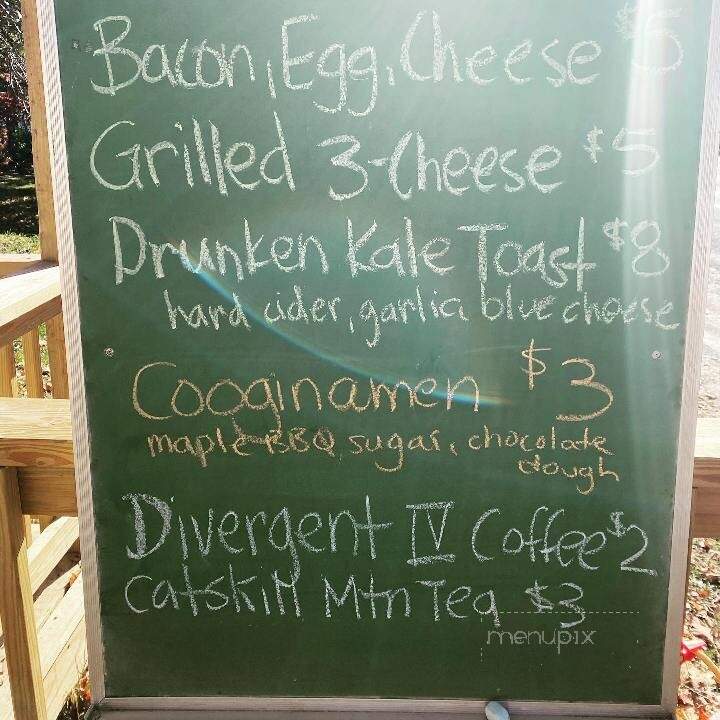 Bacon, Egg, Cheese $5
Grilled 3-Cheese $5
Drunken Kale Toast $8
hard cider, garlic, blue cheese
Cooginamen $3
maple-BBQ sugar, chocolate
dough
Divergent IV Coffee $2
Catskill Mtn Tea $3
menupix